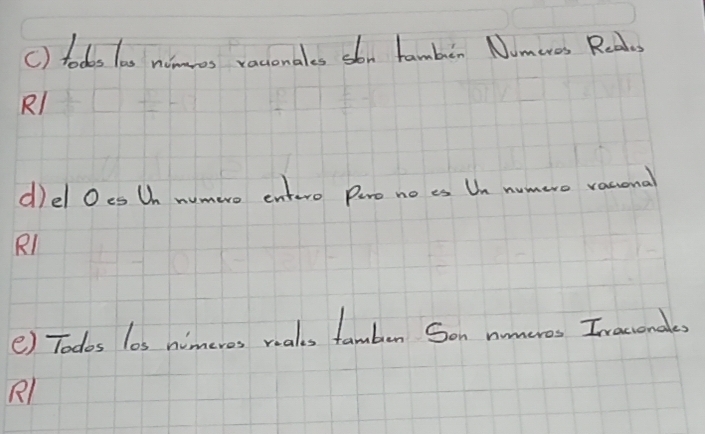 c) todos las números racionales son también Numeros Reales
R/
d) el 0 es Un numero entero pero no es Un numero racional
R/
e) Todos los números reales tambien Son numeros Irracionales
R/